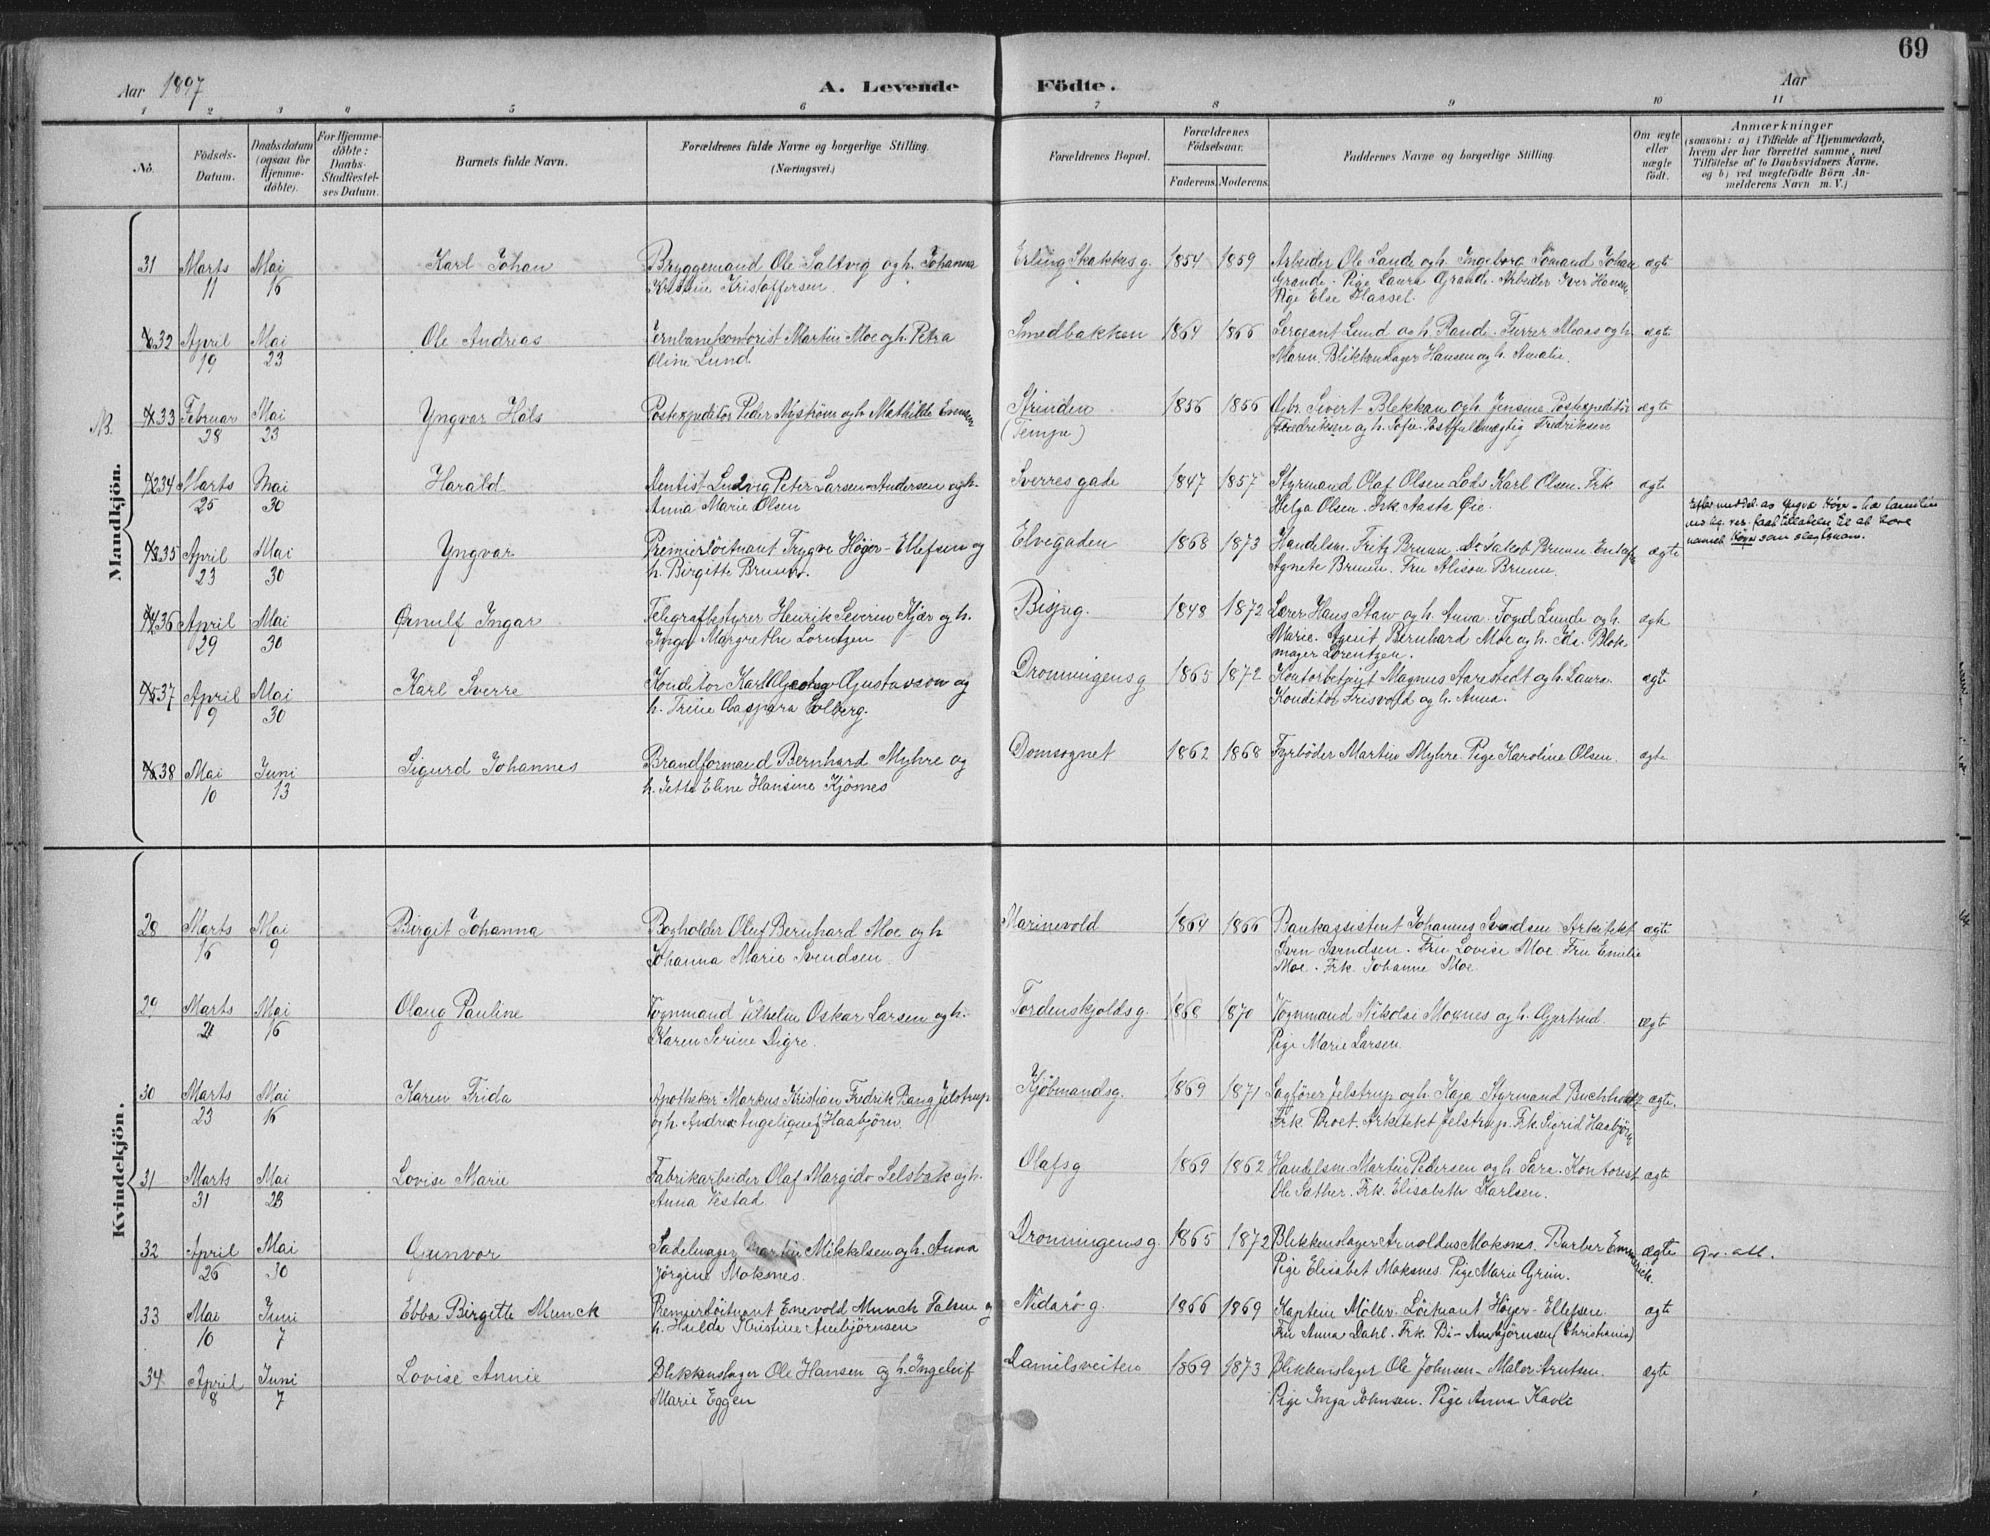 69
Aar 1897
A. Levende Födte.
Aar
1 2 3 4 5 6 7 8 9 10 11
No.
Födsels-Datum.
Daabsdatum (ogsaa for Hjemme-döbte).
For Hjemme-döbte: Daabs-Stadfæstel-ses Datum.
Barnets fulde Navn.
Forældrenes fulde Navne og borgerlige Stilling.
(Næringsvei.)
Forældrenes Bopæl.
Forældrenes Födselsaar.
Faderens. Moderens.
Faddernes Navne og borgerlige Stilling.
Om ægte eller uægte födt.
Anmærkninger
(saasom: a) i Tilfælde af Hjemmedaab, hvem der har forrettet samme, med Tilföielse af to Daabsvidners Navne, og b) ved uægtefödte Börn An-melderens Navn m. V.)
Mandkjön.
31 Marts 11 Mai 16 Karl Johan Bryggemand Ole Saltvig og h. Johanna Erling Skakkes g. 1854 1859 Arbeider Ole Sand og h. Ingeborg Sömand Johan ægte
Kristine Kristoffersen. Grande. Pige Laura Grande. Arbeider Iver Hansen
Pige Else Hassel.
32 April 19 Mai 23 Ole Andreas Jernbanekontorist Martin Moe og h. Petra Smedbakken 1864 1866 Sergeant Lund og h. Rande. Furer Moaas og h. ægte
Oline Lund Maren. Blikkenslager Hansen og h. Amalie.
NB. 33 Februar 28 Mai 23 Yngvar Hals Postexpeditör Peder Nyström og h. Mathilde Strinden 1856 1856 Gbr. Sivert Blekkan og h. Jensine Postexpeditör ægte
(Tempe) Fredriksen og h. Sofie. Postfuldmægtig Fredriksen
34 Marts 25 Mai 30 Harald Dentist Ludvig Peter Larsen-Andersen og h. Sverres gade 1847 1857 Styrmand Olaf Olsen Lods Karl Olsen. Frk. ægte
Anna Marie Olsen Helga Olsen. Frk Aasta Öie.
35 April 23 Mai 30 Yngvar Premierlöitnant Trygve Höyer-Ellefsen og Elvegaden 1868 1873 Handelsm. Fritz Bruun. Dr. Jakob Bruun Enkefru ægte
h. Birgitte Bruun. Agnete Bruun. Fru Alison Bruun.
36 April 29 Mai 30 Ørnulf Ingar Telegrafbestyrer Henrik Severin Kjær og h. Bispeg. 1848 1872 Lærer Hans Staw og h. Anna. Foged Lunde og h. ægte
Inga Margrethe Lorntzen Marie. Agent Bernhard Moe og h. Ida. Blok-
mager Lorentzen.
37 April 9 Mai 30 Karl Sverre Konditor Karl Georg Gustavson og Dronningens g 1865 1872 Kontorbetjent Magnus Aarstedt og h. Laura. ægte
h. Trine Caspara Solberg. Konditor Frisvold og h. Anna.
38 Mai 10 Juni 13 Sigurd Johannes Brandformand Bernhard Myhre og Domsognet 1862 1868 Fyrböder Martin Myhre Pige Karoline Olsen. ægte
h. Jette Eline Hansine Kjösnes
Kvindekjön.
28 Marts 16 Mai 9 Birgit Johanna Bogholder Oluf Bernhard Moe og h Marinevold 1864 1866 Bankassistent Johannes Svendsen Arkitekt ægte
Johanna Marie Svendsen. Sven Svendsen. Fru Lovise Moe. Fru Emilie
Moe. Frk. Johanne Moe.
29 Marts 21 Mai 16 Olaug Pauline Vognmand Vilhelm Oskar Larsen og h. Tordenskjolds g. 1868 1870 Vognmand Nikolai Moxnes og h. Gjertrud. ægte
Karen Serine Digre. Pige Marie Larsen.
30 Marts 23 Mai 16 Karen Frida Apotheker Markus Kristian Fredrik Bang Jelstrup Kjöbmandsg. 1869 1871 Sagförer Jelstrup og h. Kaja Styrmand Buchholdtz ægte.
og h. Andrea Angelique Haabjörn. Frk. Broct. Arkitekt Jelstrup. Frk. Sigrid Haabjörn
31 Marts 31 Mai 23 Lovise Marie Fabrikarbeider Olaf Margido Selsbak og h. Olafs g 1869 1862 Handelsm. Martin Pedersen og h. Sara. Kontorist ægte
Anna Vestad Ole Sæther. Frk. Elisabeth Karlsen.
32 April 26 Mai 30 Gunvor Sadelmager Martin Mikkelsen og h. Anna Dronningens g. 1865 1872 Blikkenslager Arnoldus Moksnes. Barber Emmerich. ægte
Jörgine Moksnes. Pige Elisabet Moksnes. Pige Marie Grün.
33 Mai 10 Juni 7 Ebba Birgitte Munck Premierlöitnant Enevold Munch Falsen og Nidarö g. 1866 1869 Kaptein Möller. Löitnant Höyer-Ellefsen. ægte
h. Hulda Kristine Arnbjörnsen Fru Anna Dahl. Frk. Bi- Arnbjörnsen (Christiania)
34. April 8 Juni 7 Lovise Annie Blikkenslager Ole Hansen og h. Ingeleif Danielsveiten 1869 1873 Blikkenslager Ole Johnsen - Maler Arntsen. ægte
Marie Eggen Pige Inga Johnsen. Pige Anna Kavle